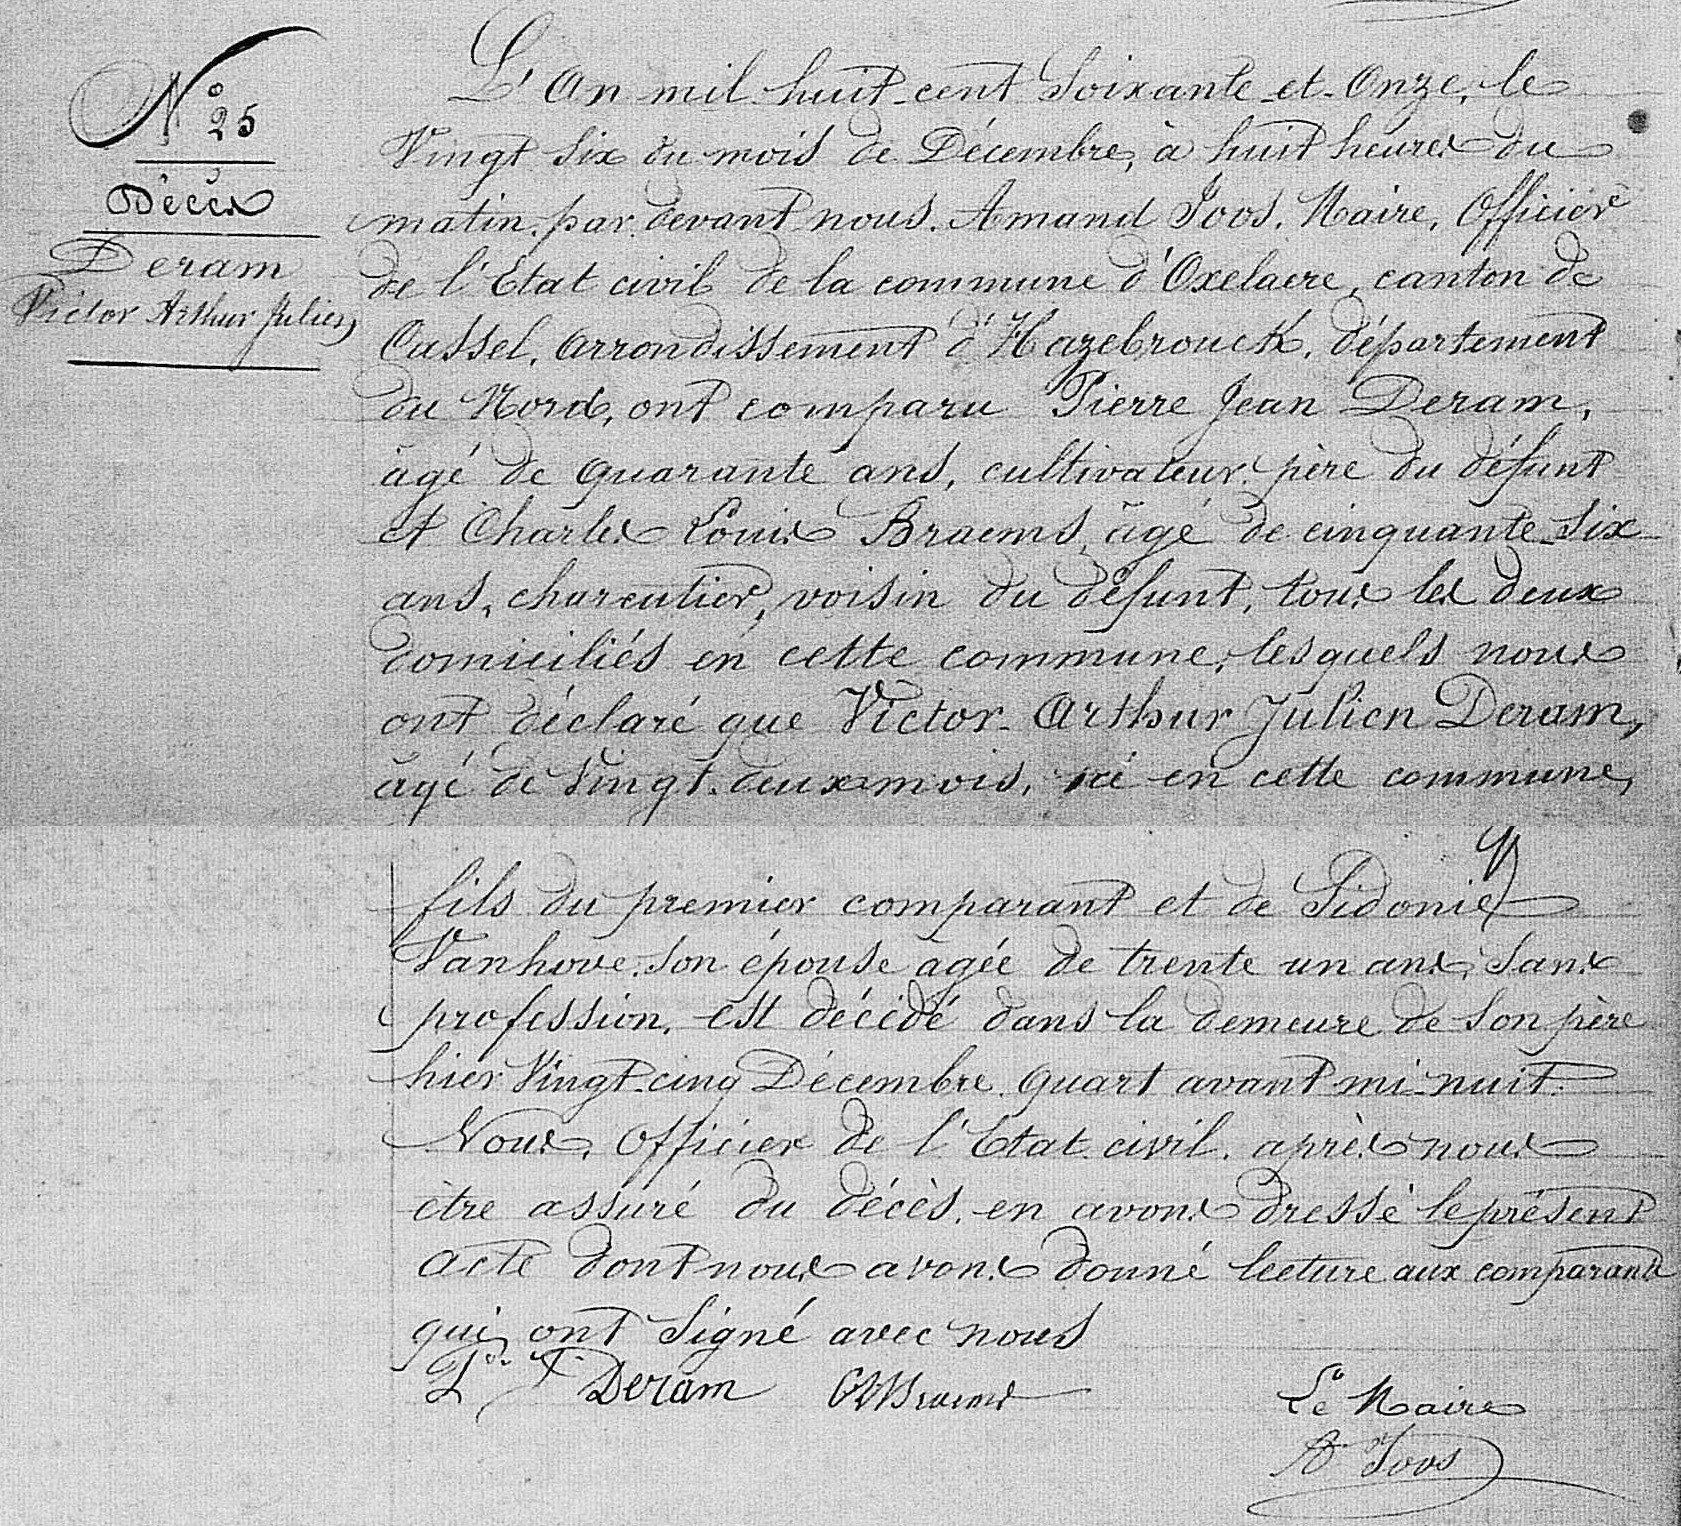 N° 25
Décès
Deram
Victor Arthur Julien
L'An mil huit-cent Soixante-et-Onze, le
Vingt six du mois de Décembre, à huit heures du
matin, par devant nous, Amand Joos, Maire, Officier
de l'Etat civil de la commune d'Oxelaere, canton de
Cassel, Arrondissement d'Hazebrouck, département
du Nord, ont comparu Pierre Jean Deram,
âgé de quarante ans, cultivateur, père du défunt
et Charles Louis Braems, âgé de cinquante-six
ans, charcutier, voisin du défunt, tous les deux
domiciliés en cette commune, lesquels nous
ont déclaré que Victor Arthur Julien Deram,
âgé de Vingt-deux mois, né en cette commune,
fils du premier comparant et de Sidonie
Vanhove, son épouse agée de trente un ans, Sans
profession, est décédé dans la demeure de Son père
hier Vingt-cinq Décembre, quart avant mi-nuit.
Nous, Officier de l'Etat civil, après nous
être assuré du décès, en avons dressé le présent
acte dont nous avons donné lecture aux comparants
qui ont Signé avec nous
Deram Braems
Le Maire
A Joos